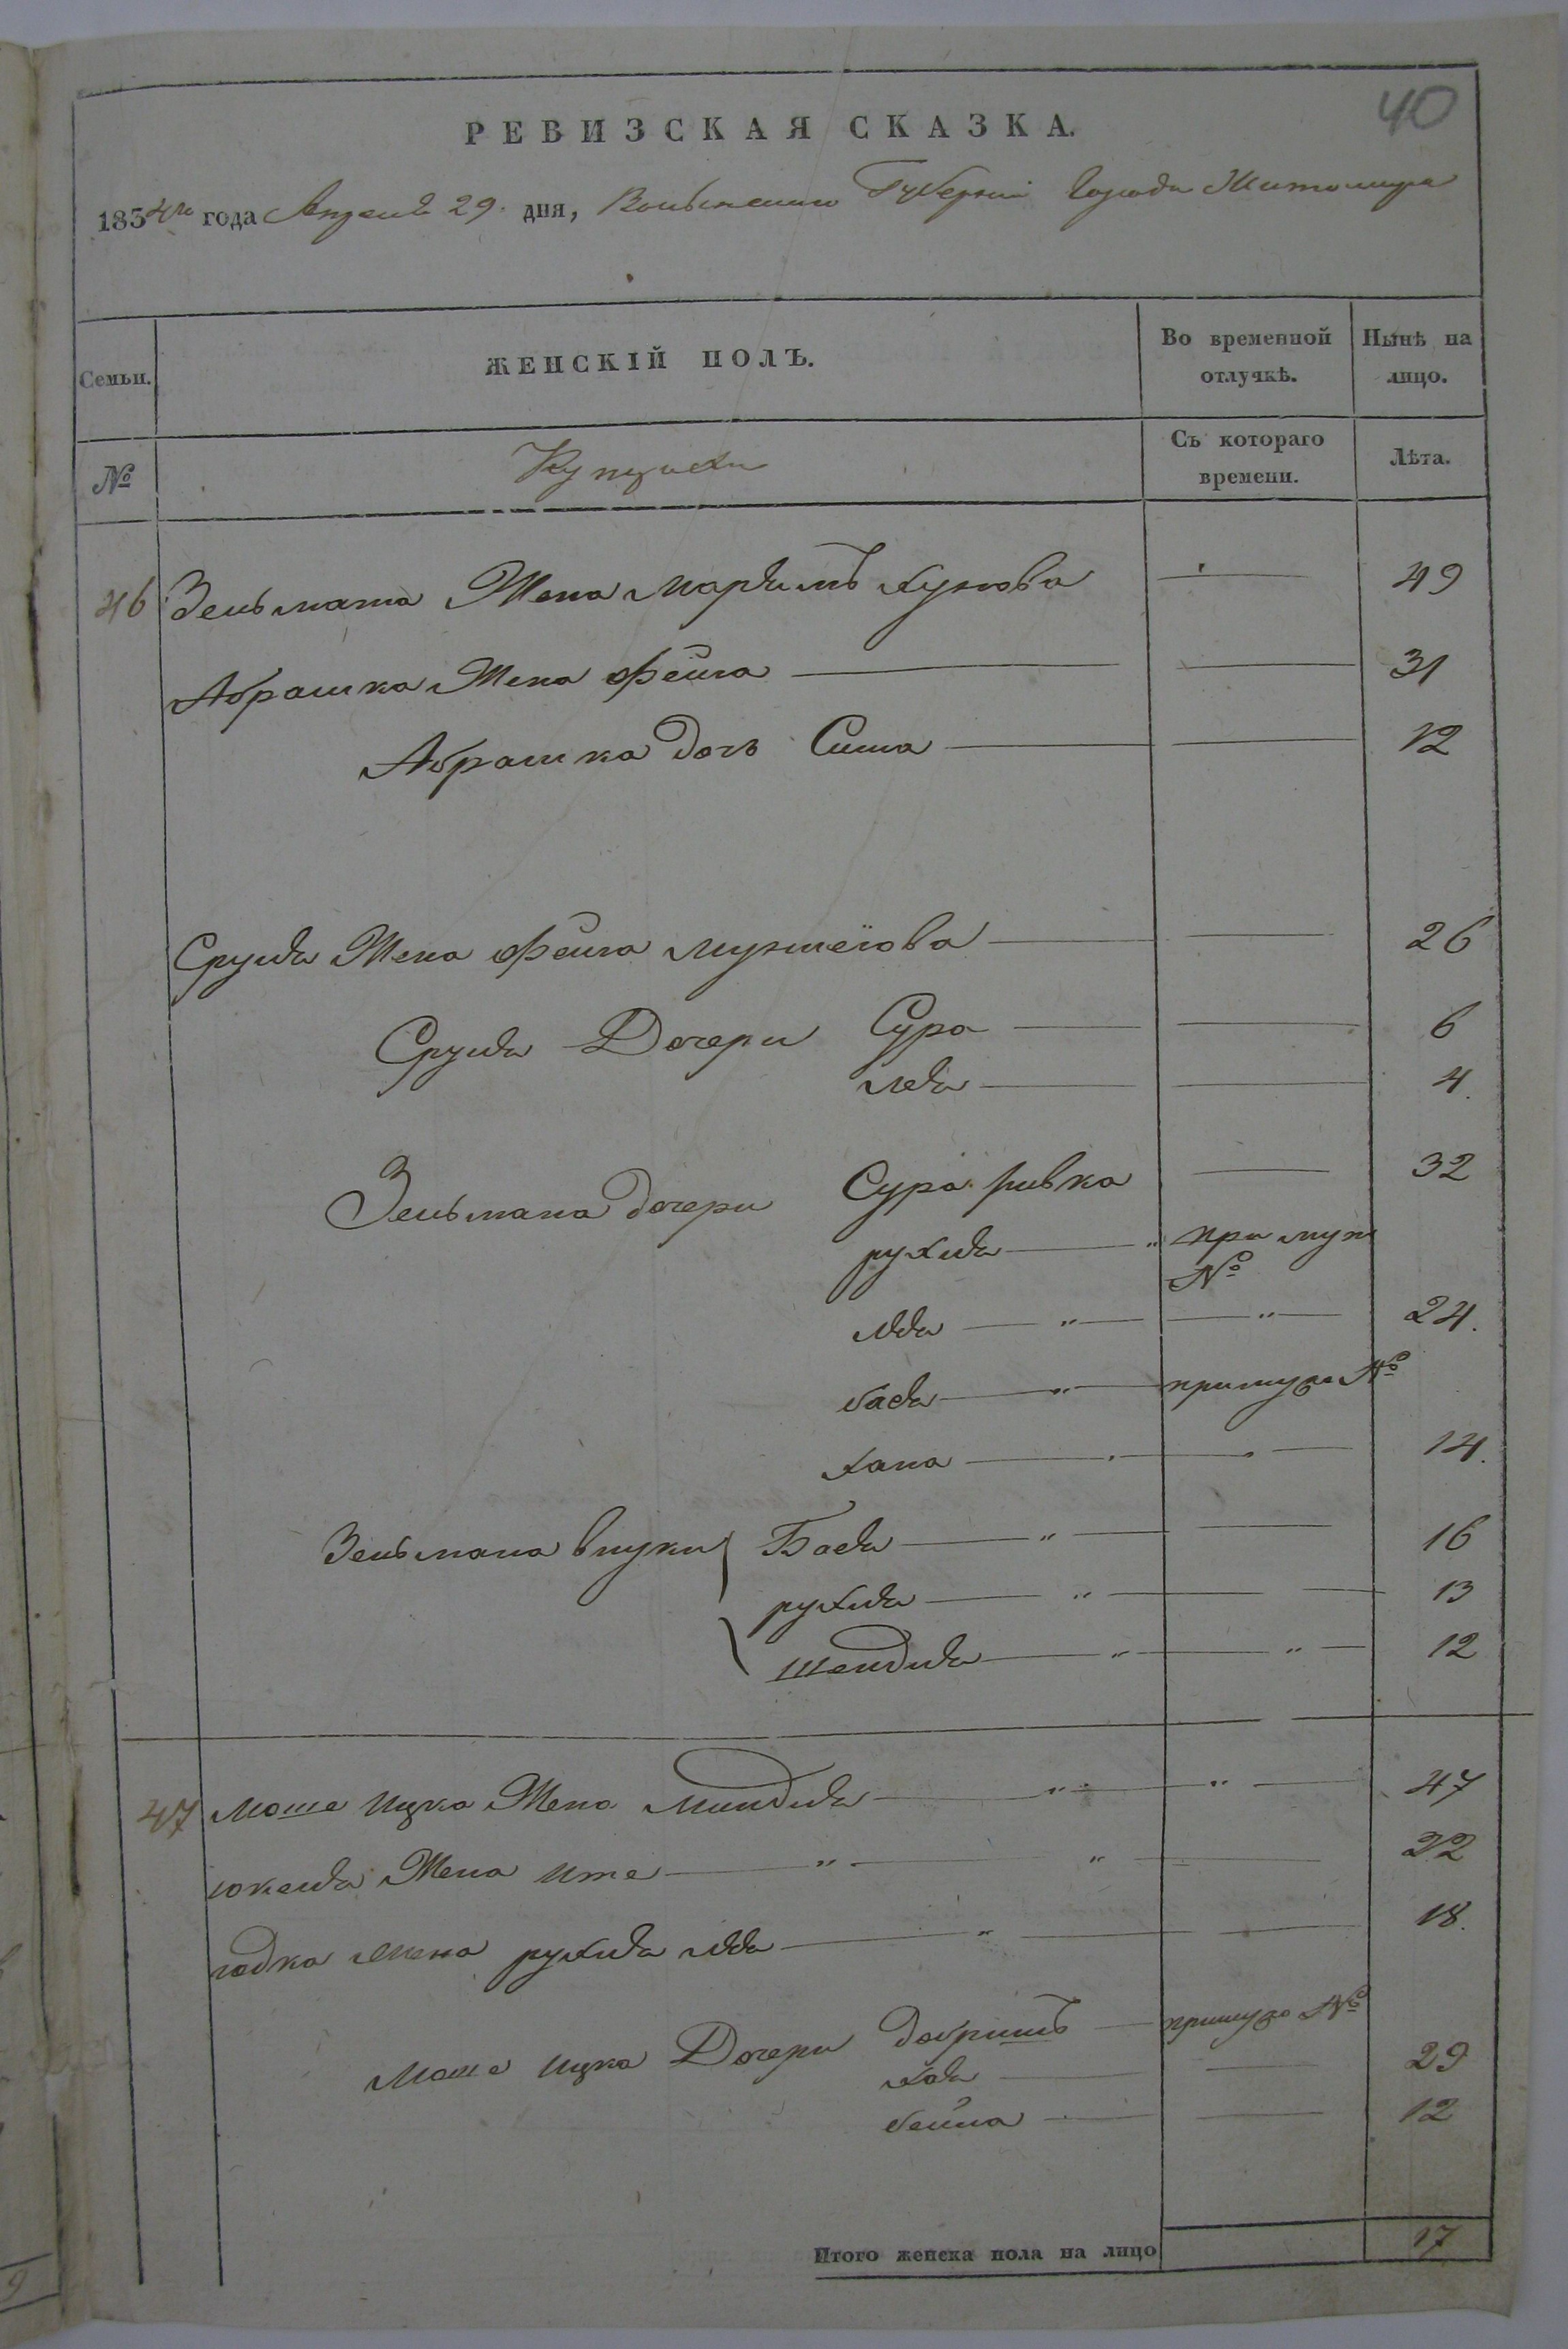 40
РЕВИЗСКАЯ СКАЗКА.
1834го года Апреля 29. дня, Волынской Губернии Города Житомира
Семьи. ЖЕНСКІЙ ПОЛЪ. Во временной отлучкѣ. Нынѣ на лицо.
№ Купцики Съ котораго времени. Лѣта.
46 Зельмана Жена Маріимъ Хунова 49
Абрашка Жена Фейга 31
Абрашка дочь Сима 12
Сруля Жена Фейга 26
Сруля Дочери Сура 6
Лея 4.
Зельмана дочери Сура ривка 32
рухля " при муж №
" " 24.
бася " при муже №
хана 14.
Зельмана внуки Бася " 16
рухля " 13
шейндля " " 12
47 Моше Ицка Жена Миндля " " 47
Жена Ите " " 22
Жена рухля " 18.
Моше Ицка Дочери добришъ при муже №
хая 29
бейла 12
Итого женска пола на лицо 17
9